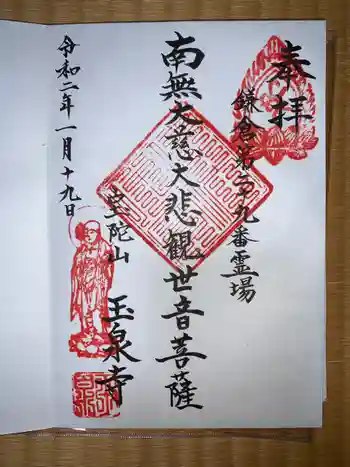 奉拝
鎌倉第二十九番霊場
南無大慈大悲観世音菩薩
普陀山
玉泉寺
令和二年一月十九日